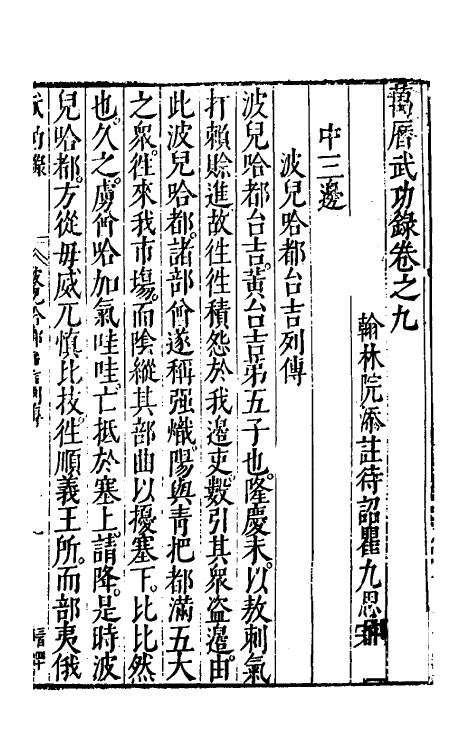 萬曆武功錄卷之九
翰林院添註待詔瞿九思
中三邊
波兒哈都台吉列傳
波兒哈都台吉。黃台吉第五子也。隆慶末。以敖刺氣
打賴賒進故往往積怨於我邊吏。數引其衆盜邊。由
此波兒哈都。諸部酋遂稱强熾。陽與青把都滿五大
之衆。徃來我市塲。而陰縱其部曲以擾塞下。比比然
也。久之。虜酋哈加氣哇哇。亡抵於塞上。請降。是時波
兒哈都。方從毋威兀慎比技。徃順義王所。而部夷俄